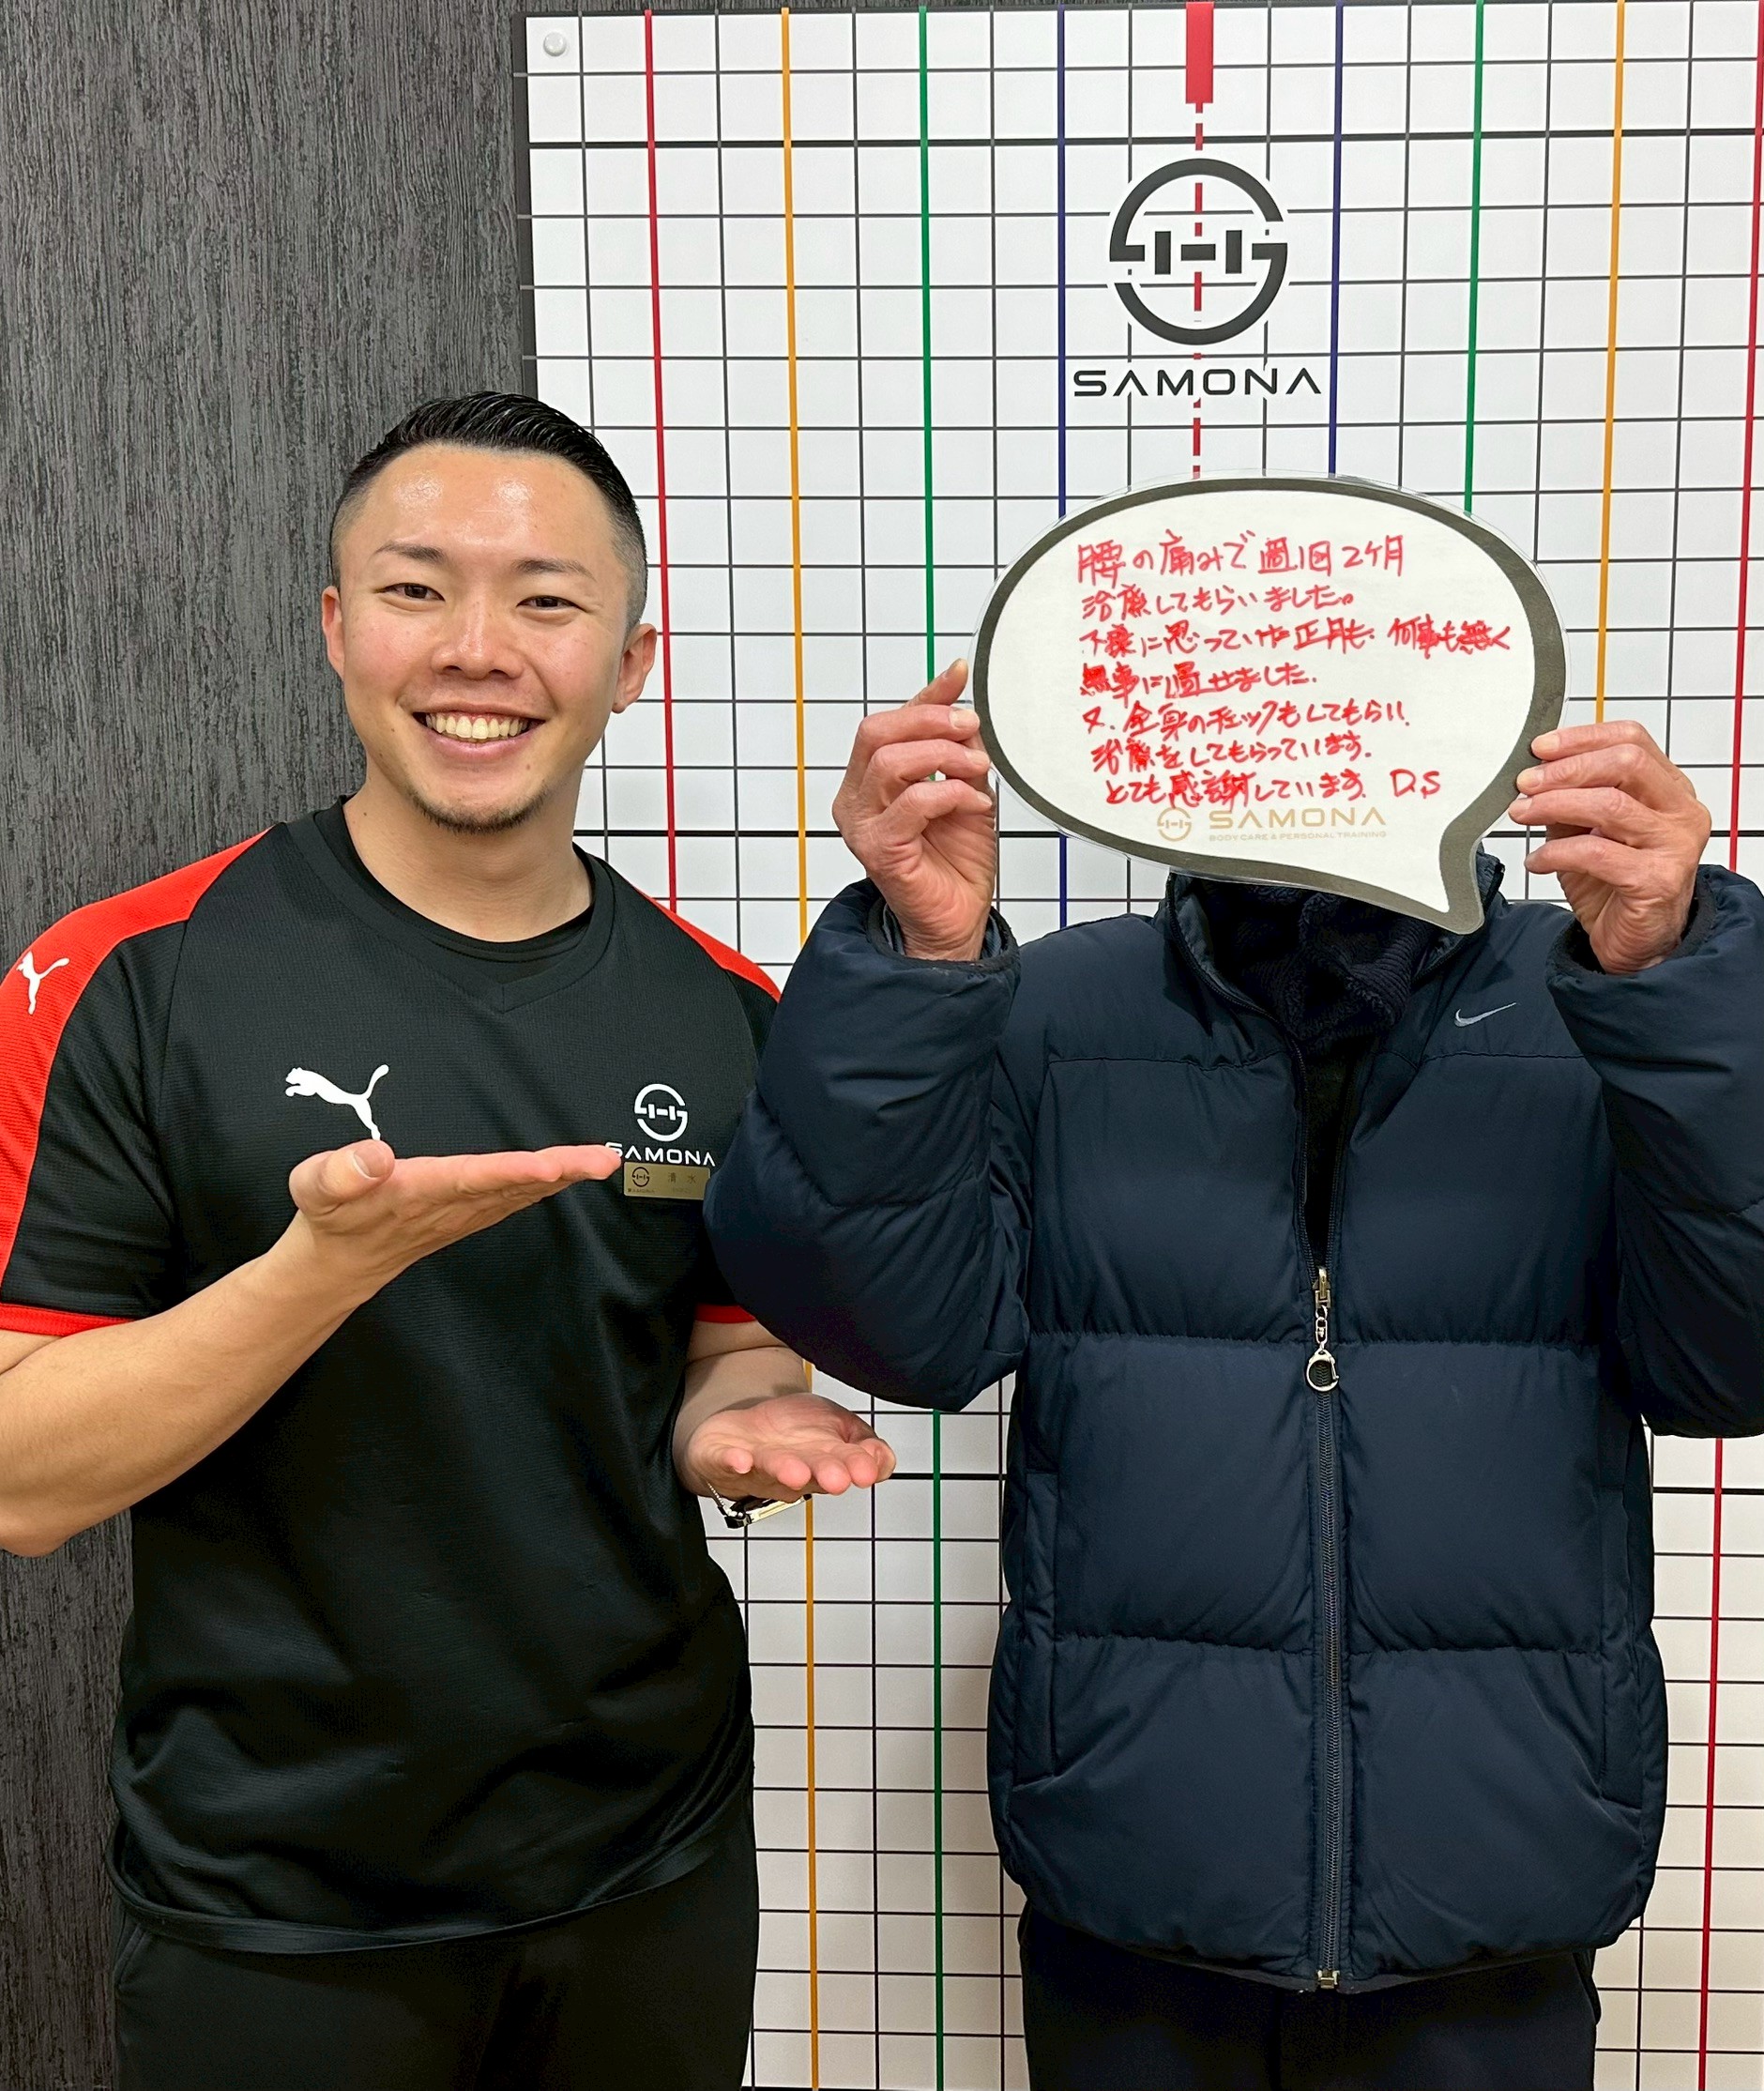 SAMONA
腰の痛みで週1回2ヶ月
治療してもらいました。
に思っていた正月も何事も無く
無事に過せました.
又、全身のチェックもしてもらい、
治療をしてもらっています.
とても感謝しています. D.S
SAMONA
BODY CARE & PERSONAL TRAINING
SAMONA
清水